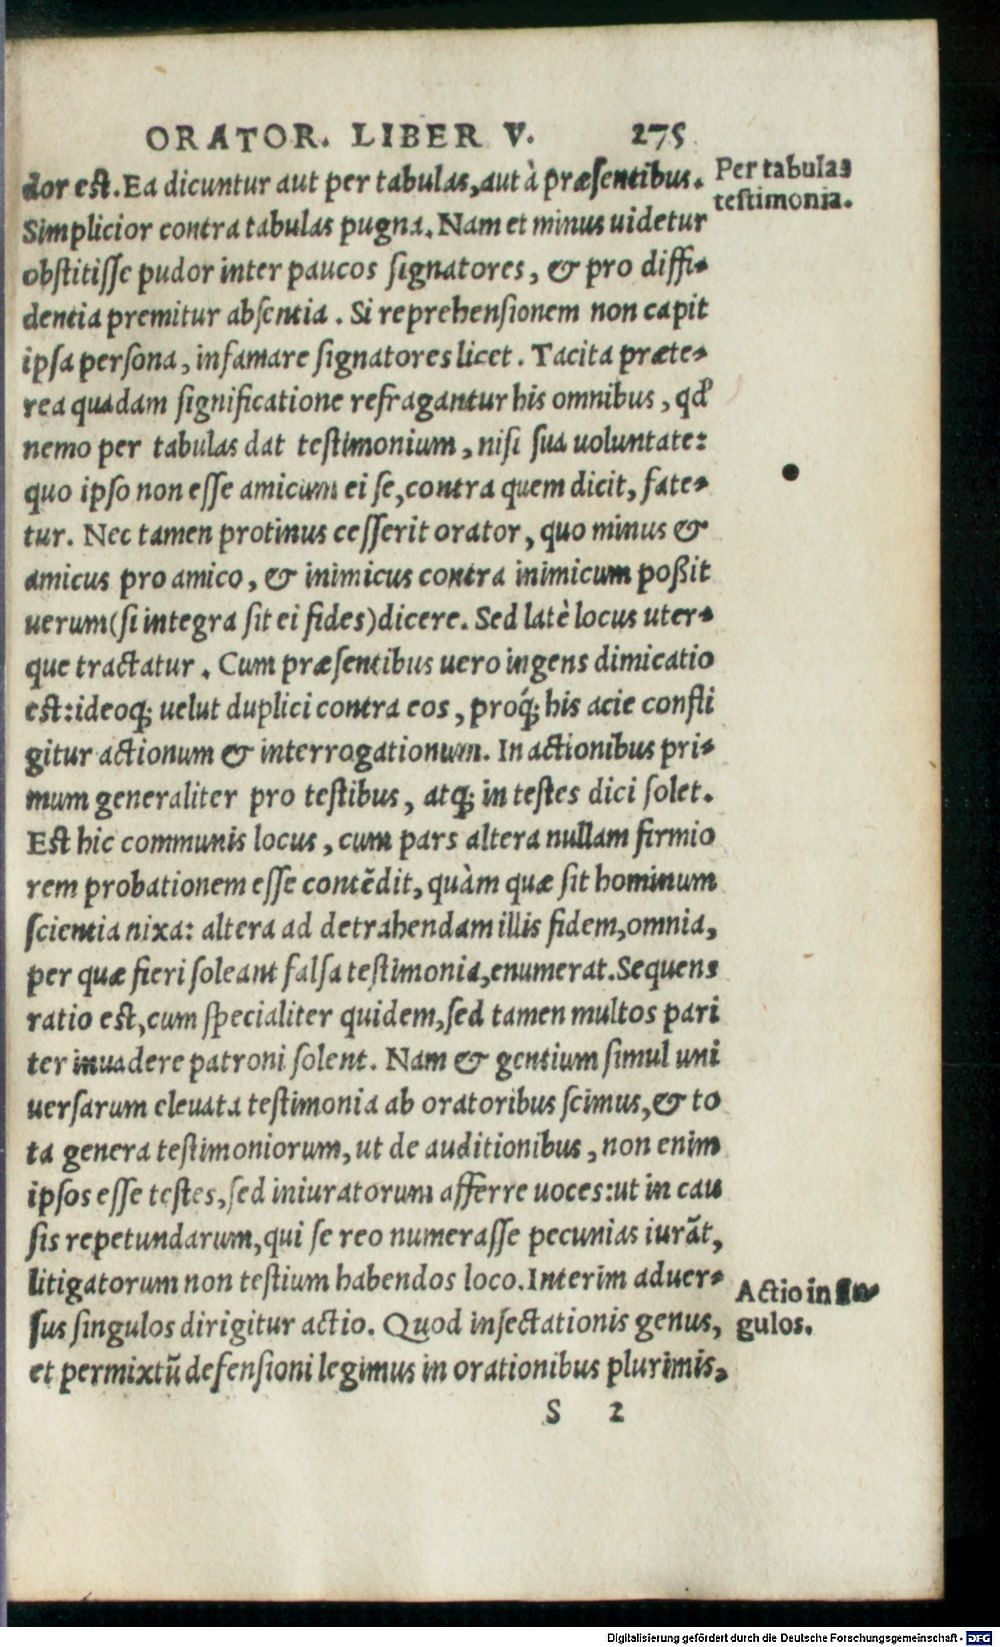 ORATOR. LIBER V. 275
Per tabulas
testimonia.
dor est. Ea dicuntur aut per tabulas, aut à præsentibus.
Simplicior contra tabulas pugna. Nam et minus uidetur
obstitisse pudor inter paucos signatores, & pro diffi-
dentia premitur absentia. Si reprehensionem non capit
ipsa persona, infamare signatores licet. Tacita præte-
rea quadam significatione refragantur his omnibus, qđ
nemo per tabulas dat testimonium, nisi sua uoluntate:
quo ipso non esse amicum ei se, contra quem dicit, fate-
tur. Nec tamen protinus cesserit orator, quo minus &
amicus pro amico, & inimicus contra inimicum poßit
uerum (si integra sit ei fides) dicere. Sed latè locus uter-
que tractatur. Cum præsentibus uero ingens dimicatio
est: ideoq; uelut duplici contra eos, proq́; his acie confli
gitur actionum & interrogationum. In actionibus pri-
mum generaliter pro testibus, atq; in testes dici solet.
Est hic communis locus, cum pars altera nullam firmio
rem probationem esse contẽdit, quàm quæ sit hominum
scientia nixa: altera ad detrahendam illis fidem, omnia,
per quæ fieri soleant falsa testimonia, enumerat. Sequens
ratio est, cum specialiter quidem, sed tamen multos pari
ter inuadere patroni solent. Nam & gentium simul uni
uersarum eleuata testimonia ab oratoribus scimus, & to
ta genera testimoniorum, ut de auditionibus, non enim
ipsos esse testes, sed iniuratorum afferre uoces: ut in cau
sis repetundarum, qui se reo numerasse pecunias iurãt,
litigatorum non testium habendos loco. Interim aduer-
sus singulos dirigitur actio. Quod insectationis genus,
et permixtũ defensioni legimus in orationibus plurimis,
Actio in sin-
gulos.
S 2
Digitalisierung gefördert durch die Deutsche Forschungsgemeinschaft - DFG